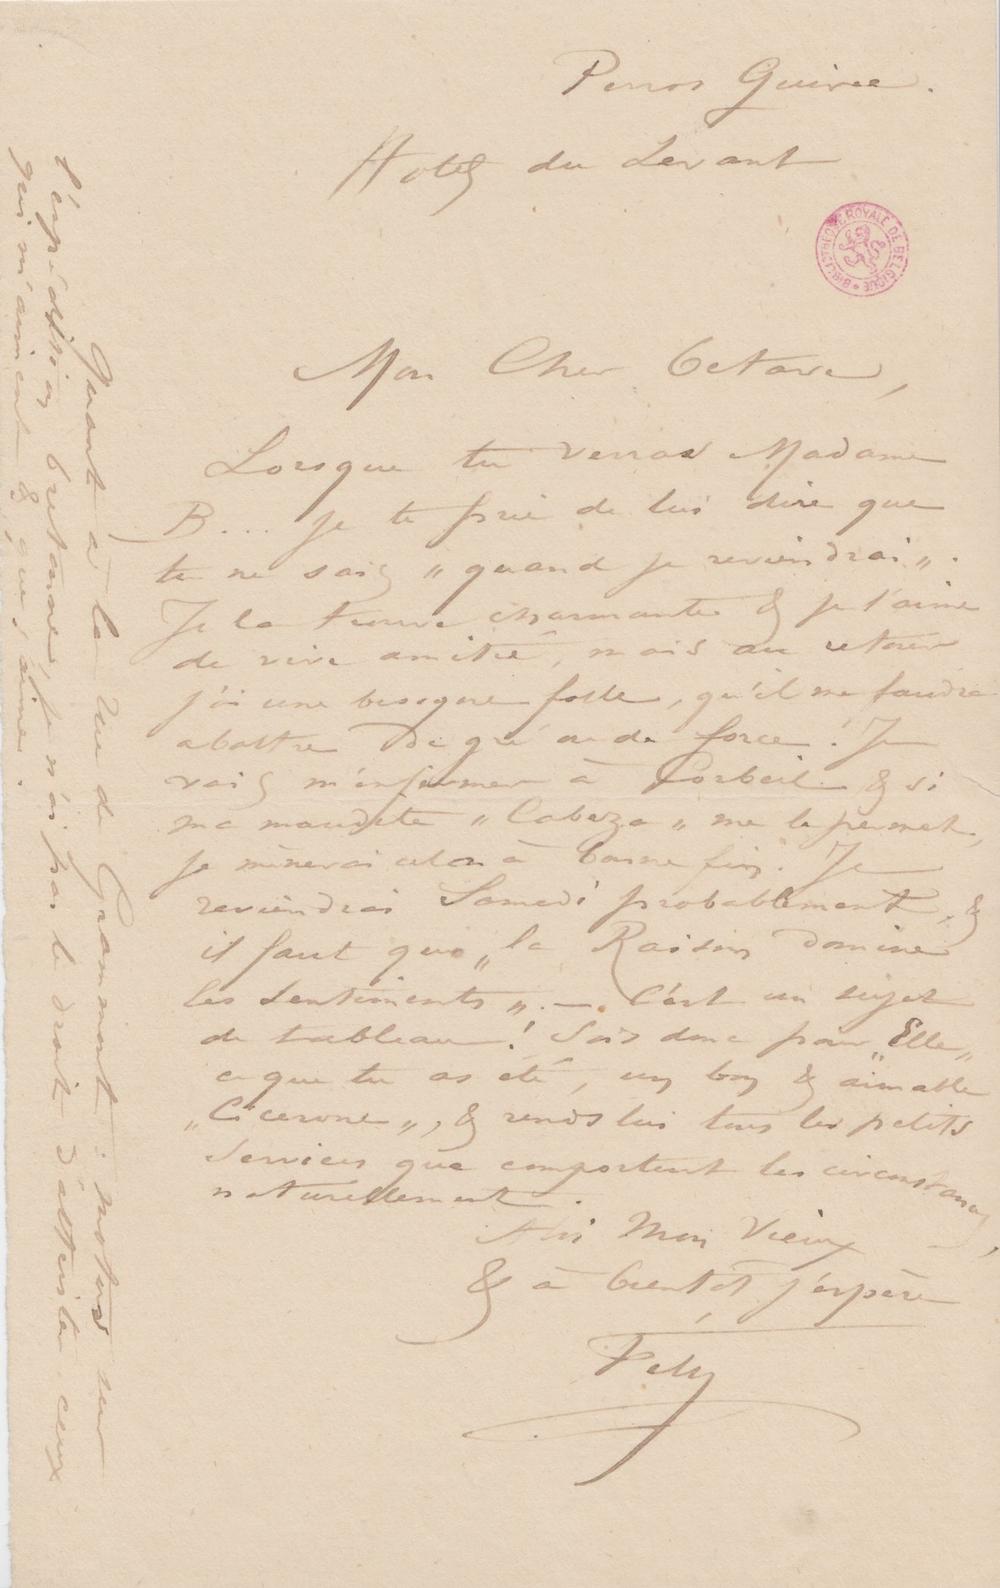 Perros Guirec.
Hotel du Levant
BIBLIOTHEQUE ROYALE DE BELGIQUE
Mon Cher Octave,
Lorsque tu verras Madame
B... je te prie de lui dire que
tu ne sais „quand je reviendrai„.
Je la trouve charmante & je l'aime
de vive amitié, mais au retour
j'ai une besogne folle, qu'il me faudra
abattre de gré ou de force! Je
vais m'enfermer à Corbeil & si
ma maudite „Cabeza„ me le permet,
je mènerai cela à bonne fin. Je
reviendrai Samedi probablement, &
il faut que „la Raison domine
les Sentiments„. —. C'est un sujet
de tableau! Sois donc pour „Elle„
ce que tu as été, un bon & aimable
„Cicerone„, & rends lui tous les petits
Services que comportent les circonstances,
naturellement.
Mon Vieux
& à bientôt j'espère
Fély
Quant à la rue de Grammont: motus sur
l'expédition bretonne, je n'ai pas le droit d'attrister ceux
qui m'aiment & que j'aime.